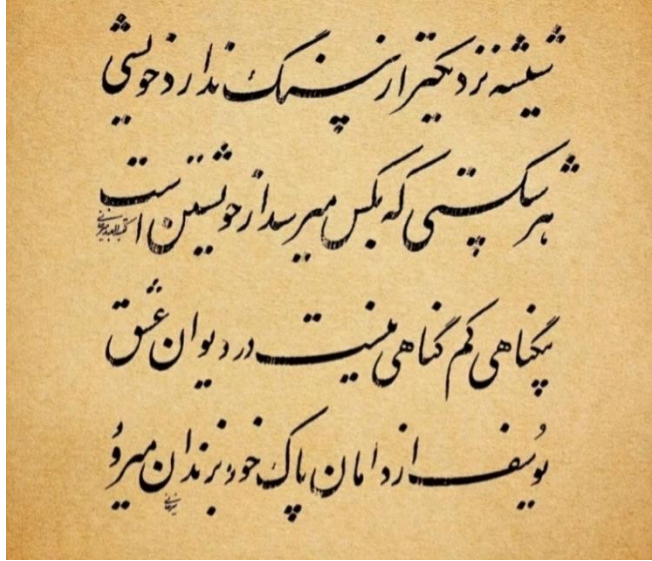 شیشه نزدیکتر از سنگ ندارد خویشی
هر شکستی که بکس میرسد از خویشتن است
بیگناهی کم گناهی نیست در دیوان عشق
یوسف از دامان پاک خود بزندان میرود